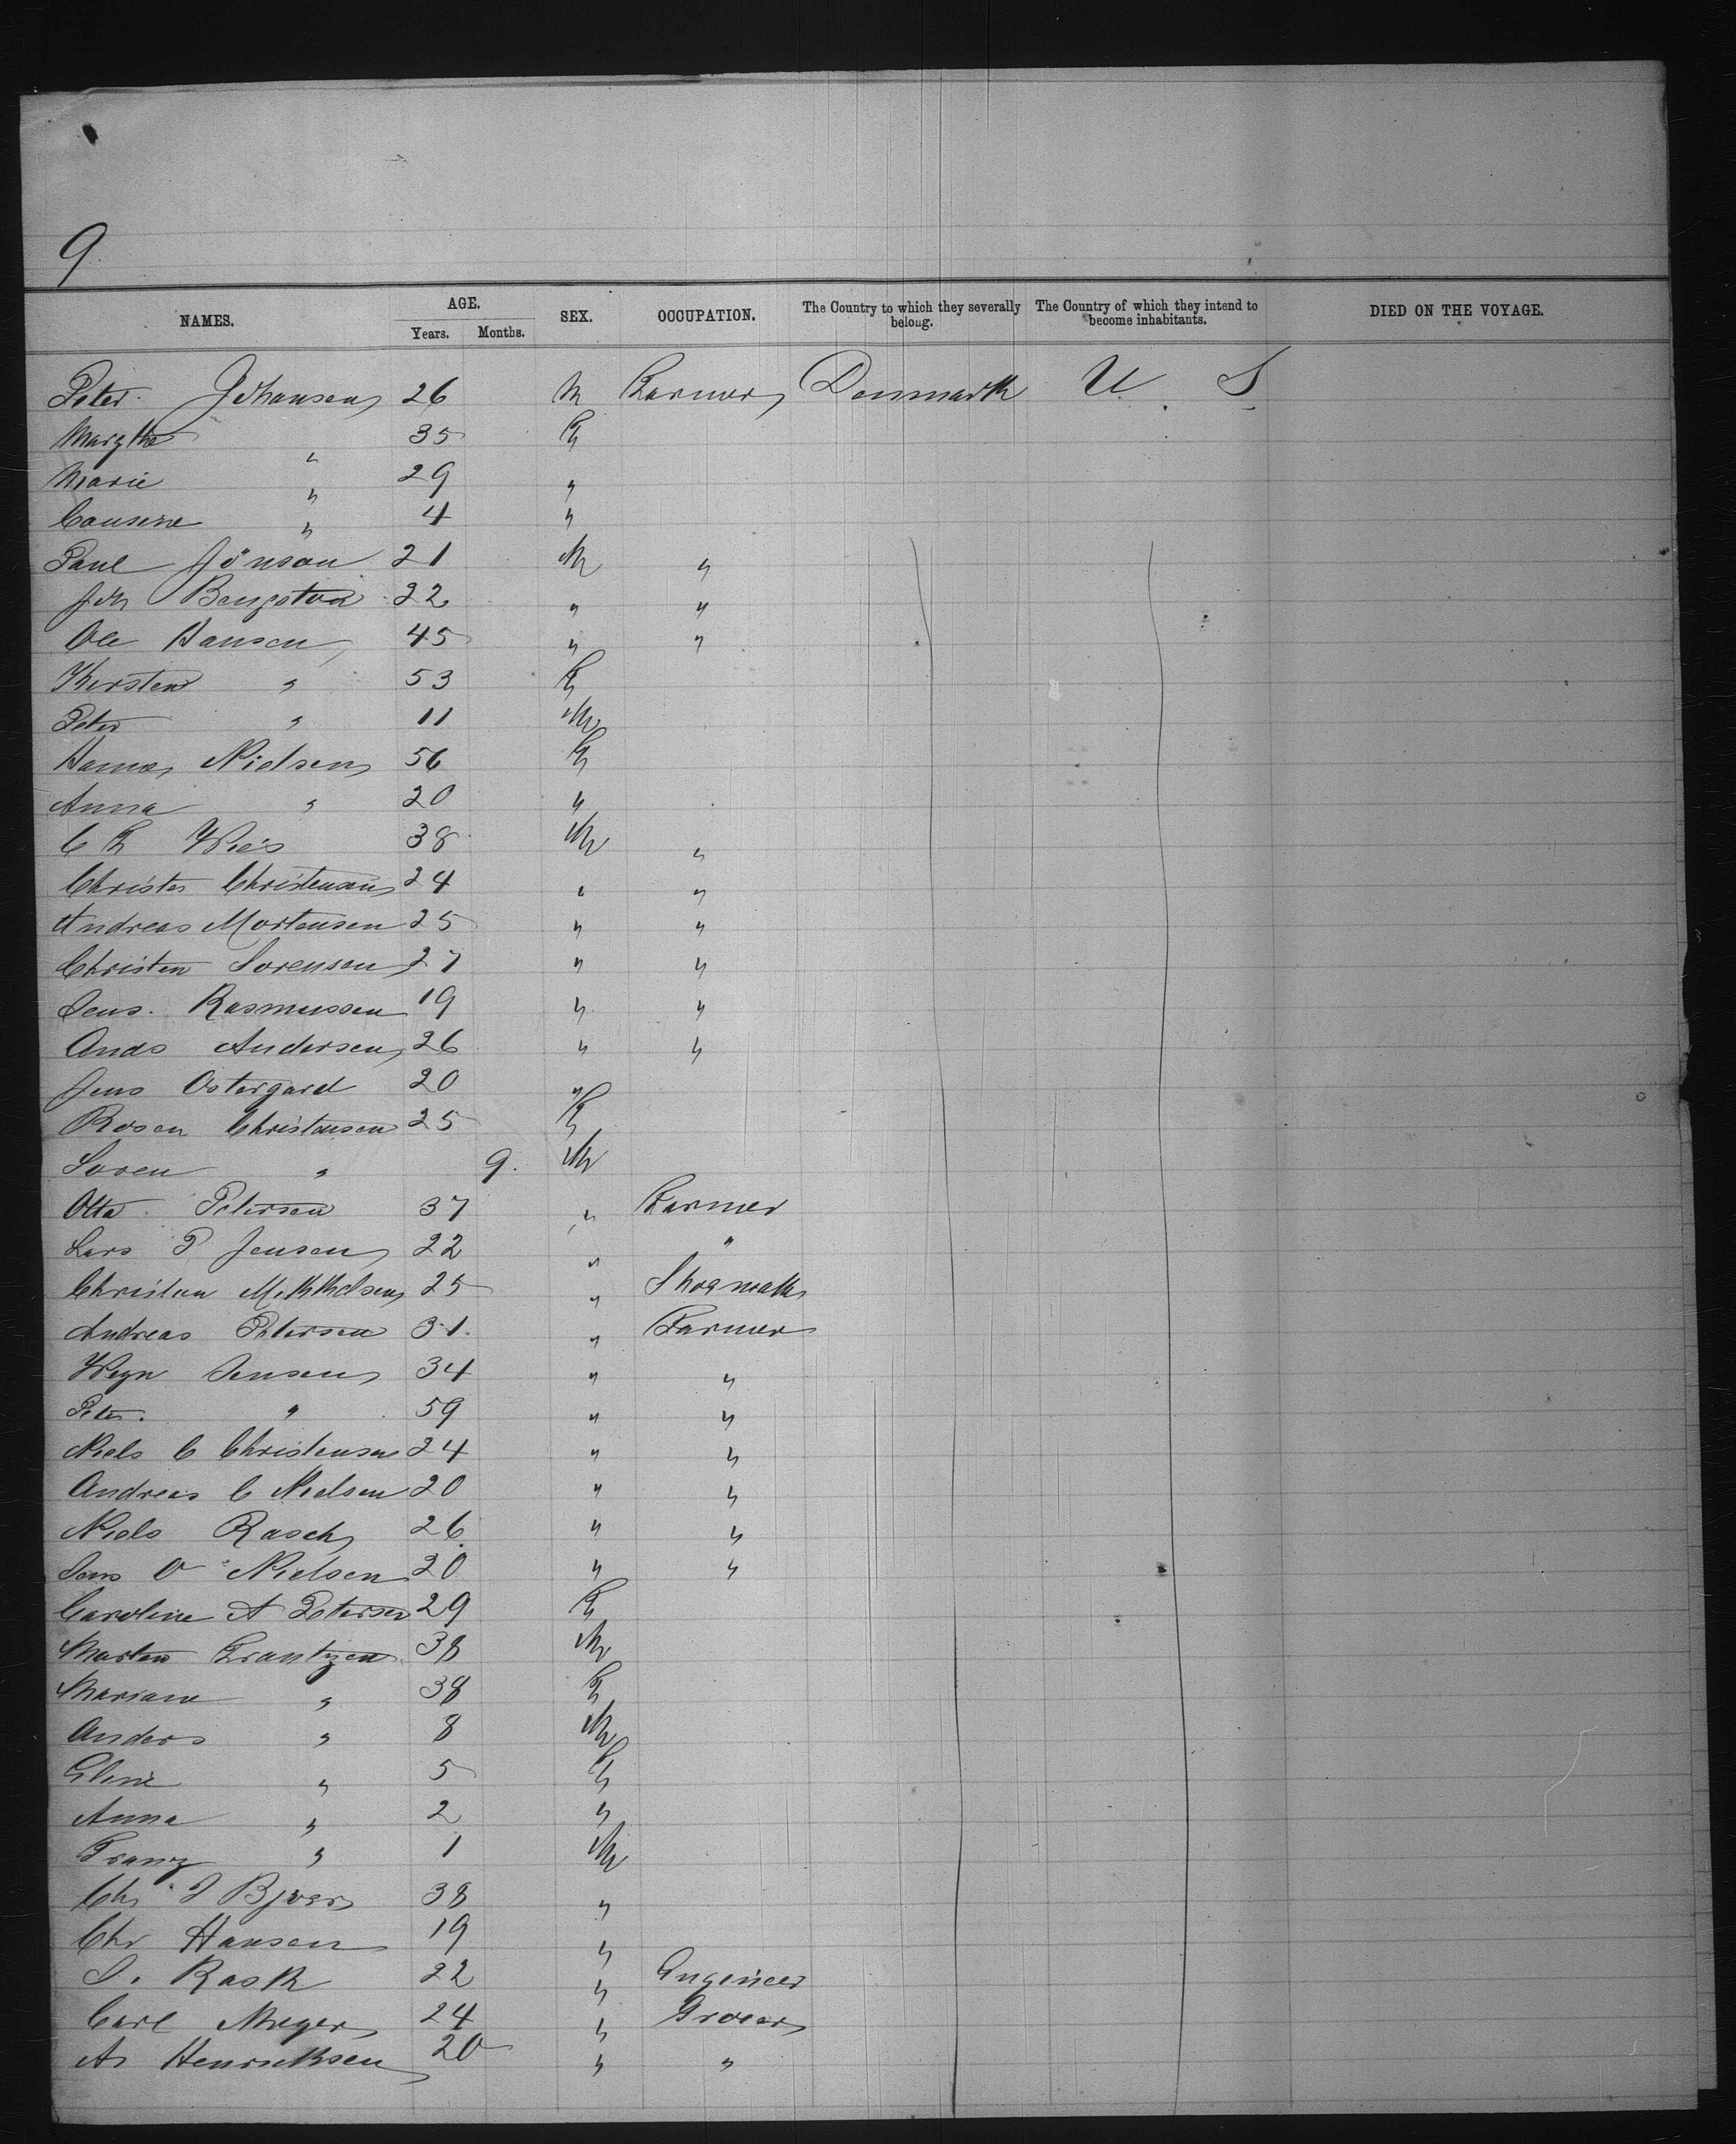 9.
NAMES. AGE. Years. Months. SEX. OCCUPATION. The Country to which they severally belong. The Country of which they intend to become inhabitants. DIED ON THE VOYAGE.
Peter Johansen 26 M Farmer Denmark U. S.
Margthe " 35 F
Marie " 29 "
" 4 "
Paul Jönson 21 M "
Joh Bengston 22 " "
Ole Hansen 45 " "
Kirsten " 53 F
Peter " 11 M
Hanna Nielsen 56 F
Anna " 20 "
C F 38 M "
Christen Christensen 24 " "
Andreas Mortensen 25 " "
Christen Sorensen 27 " "
Jens. Rasmussen 19 " "
Ands Andersen 26 " "
Jens Ostergard 20 "
Rosen Christensen 25 F
Soren " 9. M
Otto Petersen 37 " Farmer
Lars P Jensen 22 " "
Christian Mikkelsen 25 "
Andreas Petersen 31. " Farmer
Jensen 34 " "
Peter. " 59 " "
Niels C Christensen 24 " "
Andreas C Nielsen 20 " "
Niels Rasch 26 " "
Jens O Nielsen 20 " "
Caroline A Petersen 29 F
Morten Frantzen 38 M
Mariane " 38 F
Anders " 8 M
" 5 F
Anna " 2 "
Franz " 1 M
38 "
Chr Hansen 19 "
Rask 22 " Engineer
Carl Meyer 24 " Grocer
As Henriksen 20 " "